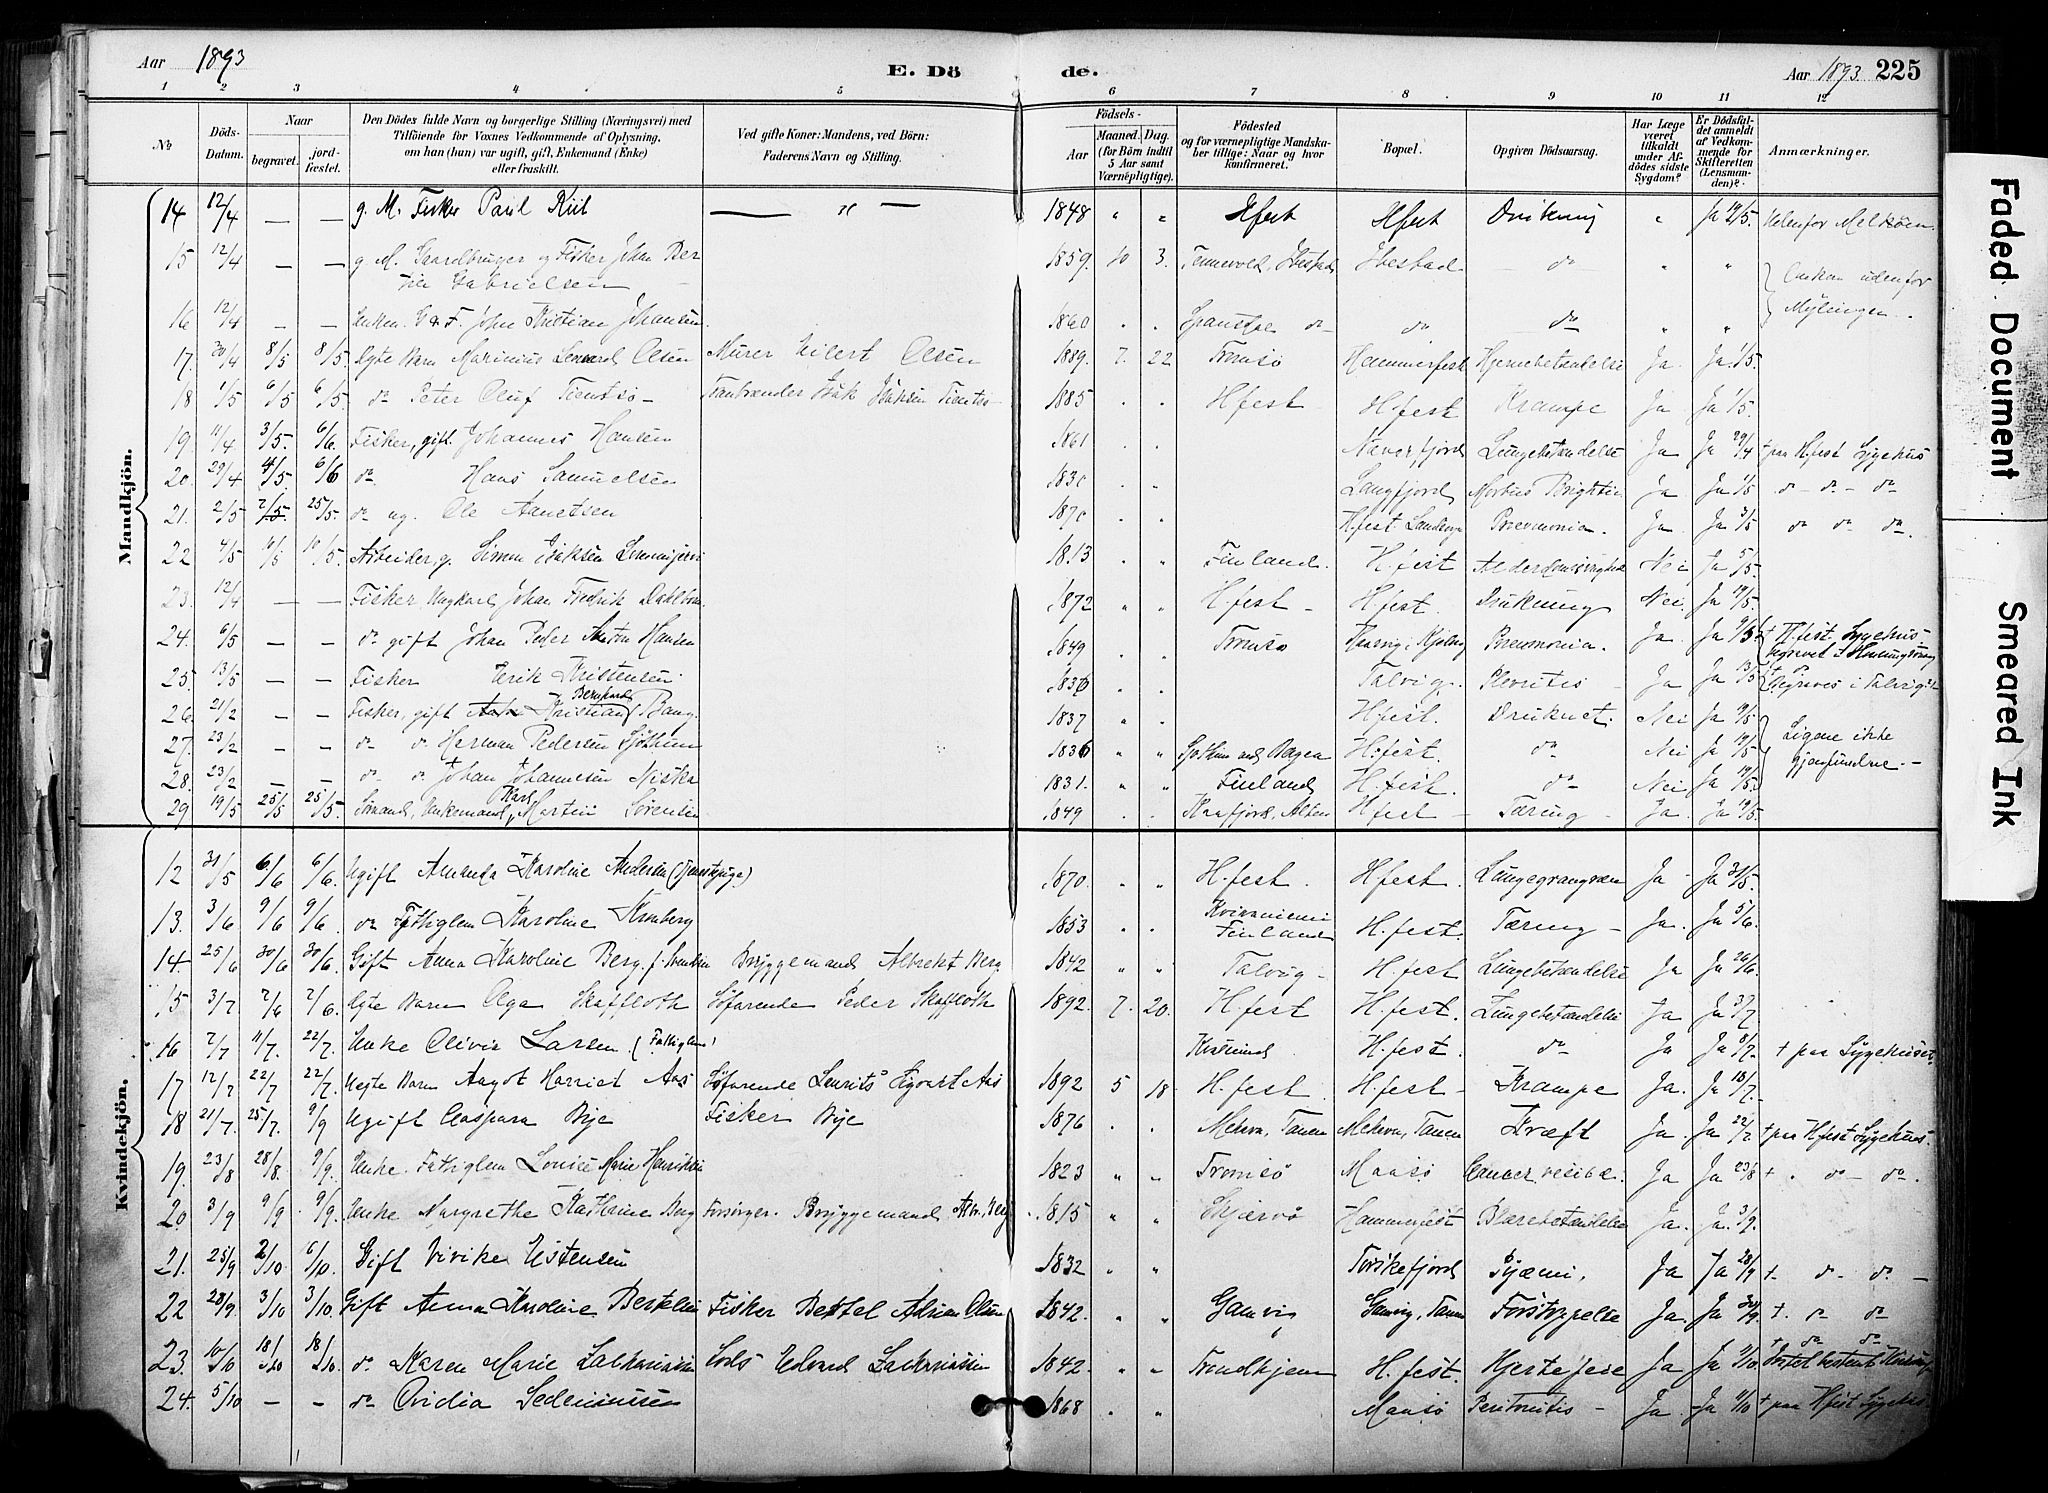 Aar 1893
E. Dö
de.
Aar 1893 225
1 2 3 4 5 6 7 8 9 10 11 12
№
Döds-
Datum.
Naar
begravet.
jord-
fæstet.
Den Dödes fulde Navn og borgerlige Stilling (Næringsvei) med
Tilföiende for Voxnes Vedkommende af Oplysning.
om han (hun) var ugift, gift, Enkemand (Enke)
eller fraskilt.
Ved gifte Koner: Mandens, ved Börn:
Faderens Navn og Stilling.
Födsels-
Aar
Maaned. Dag.
(for Börn indtil
5 Aar samt
Værnepligtige).
Födested
og for værnepligtige Mandska-
ber tillige: Naar og hvor
konfirmeret.
Bopæl.
Opgiven Dödsaarsag.
Har Læge
været
tilkaldt
under Af-
dödes sidste
Sygdom?
Er Dödsfal-
det anmeldt
af Vedkom-
mende for
Skifteretten
(Lensman-
den)?
Anmærkninger.
Mandkjön.
14 12/4 — — g. M. Fisker Paul Kiil — " — 1848 " " Hfest Hfest Drukning " Ja 19/5. Udenfor Melkøen
15 12/4 — — g. M. Gaardbruger og Fisker Johan Ber
Gabrielsen 1859. 10 3. Tennevold, Ibestad Ibestad do " " udenfor
16 12/4 — — Johan Kristian Johansen. 1860 . . do do do " " Mylingen.
17. 30/4 8/5 8/5. Ægte Barn Marinius Leonard Olsen Murer Eilert Olsen 1889. 7. 22 Tromsø Hammerfest Hjernebetændelse Ja Ja 1/5.
18 1/5 6/5 6/5. do Peter Oluf Tientsø — Tranbrænder Isak Isaksen Tientsø 1885 . . Hfest H.fest Krampe Ja Ja 1/5.
19. 11/4 3/5. 6/6. Fisker, gift. Johannes Hansen 1861 . . Næverfjord Lungebetændelse Ja Ja 29/4 + paa H.fest Sygehus
20. 29/4 4/5. 6/6 do Hans Samuelsen 1830 . . Langfjord Morbus Brightii Ja Ja 1/5 do — do — do
21. 2/5 7/5. 25/5. do ug. Ole Aanetsen 1870 . . Hfest Landsogn Pneumonia. Ja Ja 3/5 do do do.
22 4/5 10/5 10/5. Arbeider, g. Simon Isaksen 1813 . . Finland. H.fest Alderdomssvaghed Nei Ja 5/5.
23. 12/4 — — Fisker Ungkarl Johan Fredrik Dahlbom. 1872 " " H.fest — H.fest. Drukning Nei. Ja 19/5.
24. 6/5 — — do gift Johan Peder Anton Hansen 1849 . . Tromsø Pneumonia. Ja. Ja 9/5 + H.fest Sygehus.
25. 13/5 — — Fisker Erik Kristensen 1836 . . Talvig. Plevritis — Ja Ja 13/5 Begraves i Talvig
26. 21/2 — — Fisker, gift Kristian Bernhard Bang. 1837 " " H.fest. Druknet. Nei Ja 19/5
27. 23/2 — — do do Herman Pedersen Sjøthun 1836 " " H.fest. do Nei Ja 19/5 Ligene ikke
28. 23/2 — — do do Johan Johannesen Niska 1831. " " Finland H.fest. do Nei Ja 19/5 gjenfundne. —
29 19/5 25/5 25/5. Sømand, Enkemand, Karl Martin Sørensen 1849 . . Kaafjord, Alten H.fest — Tæring — Ja. Ja 19/5.
Kvindekjön.
12 31/5 6/6 6/6. Ugift Amanda Karoline Andersen (Tjenestepige) 1870. " " H.fest. Hfest. Lungegrangræn Ja — Ja 31/5.
13. 3/6 9/6 9/6. do Fattiglem Karoline Kronberg 1853 . . Finland H.fest. Tæring — Ja. Ja 5/6.
14. 25/6 30/6 30/6. Gift Anna Karoline Berg. f. Svendsen Bryggemand Albrekt Berg. 1842 " " Talvig — H.fest Lungebetændelse Ja Ja 26/6.
15 3/7 7/6 7/6. Ægte Barn Olga Skaffloth Søfarende Peder Skaffloth 1892 7. 20. H.fest H.fest. Lungebetændelse Ja Ja 3/7
16 7/7 11/7. 22/7. Enke Olivia Larsen. (Fattiglem) Kistrand H.fest. do Ja Ja 8/7. + paa Sygehuset.
17 12/7 22/7 22/7. Uægte Barn Aagot Harriet Aas Søfarende Lauritz Sigvart Aas 1892 5 18. H.fest. H.fest — Krampe Ja. Ja 18/7.
18 21/7. 25/7. 9/9 Ugift Caspara Bye Fisker Bye 1876 . . Mehavn, Tanen Mehavn, Tanen Kræft Ja. Ja 22/7. + paa H.fest Sygehus.
19. 23/8 28/8. 9/9. Enke. Fattiglem Lovise Marie Henriksen 1823 " " Tromsø Maasø Cancer vesicæ. Ja Ja 23/8 + . do — do.
20 3/9 9/9 9/9. Enke Margrethe Katharine Berg Forsørger. Bryggemand Albr. Berg 1815 " " Skjærvø Hammerfest Blærebetændelse Ja. Ja. 3/9.
21. 25/9 2/10 6/10. Gift Vivike Estensen 1832 " " Torskefjord Pyæmi. Ja Ja 28/9 + — do — do —
22 28/9. 3/10 3/10. Gift Anna Karoline Bertelsen Fisker Bertel Adrian Olsen 1842. " " Gamvig Gamvig, Tanen Forstoppelse Ja. Ja 30/9. + . do do
23. 10/10 18/10 18/10. do Karen Marie Zakariassen Lods Edvard Zakariassen 1842. " " Trondhjem H.fest. Hjertefeil Ja Ja 11/10. + do do
24. 5/10 — — do Ovidia Sedeniussen 1868 . " Maasø Peritonitis — Ja — Ja 11/10 + paa Hfest Sygehus
Faded Document
Smeared Ink